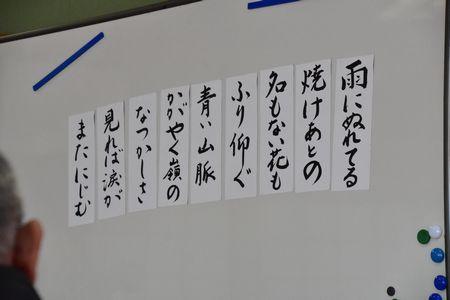 雨にぬれてる
焼けあとの
名もない花も
ふり仰ぐ
青い山脈
かがやく嶺の
なつかしさ
見れば涙が
またにじむ